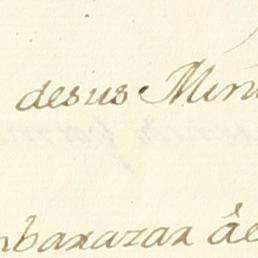 desus Min
nbarazar âe